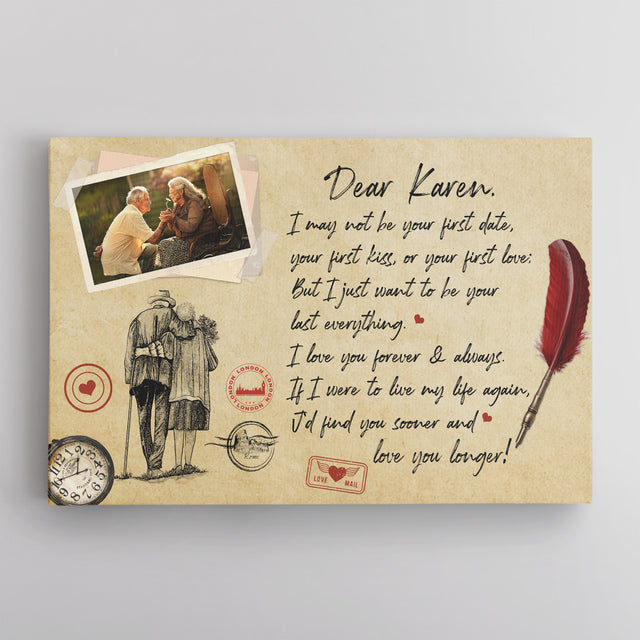 Dear Karen.
I may not be your first date,
your first kiss, or your first love:
But I just want to be your
last everything.
I love you forever & always.
If I were to live my life again,
I'd find you sooner and
love you longer!
LONDON LONDON LONDON LONDON
LOVE MAIL
12 1 2 3 4 5 6 7 8 9 10 11